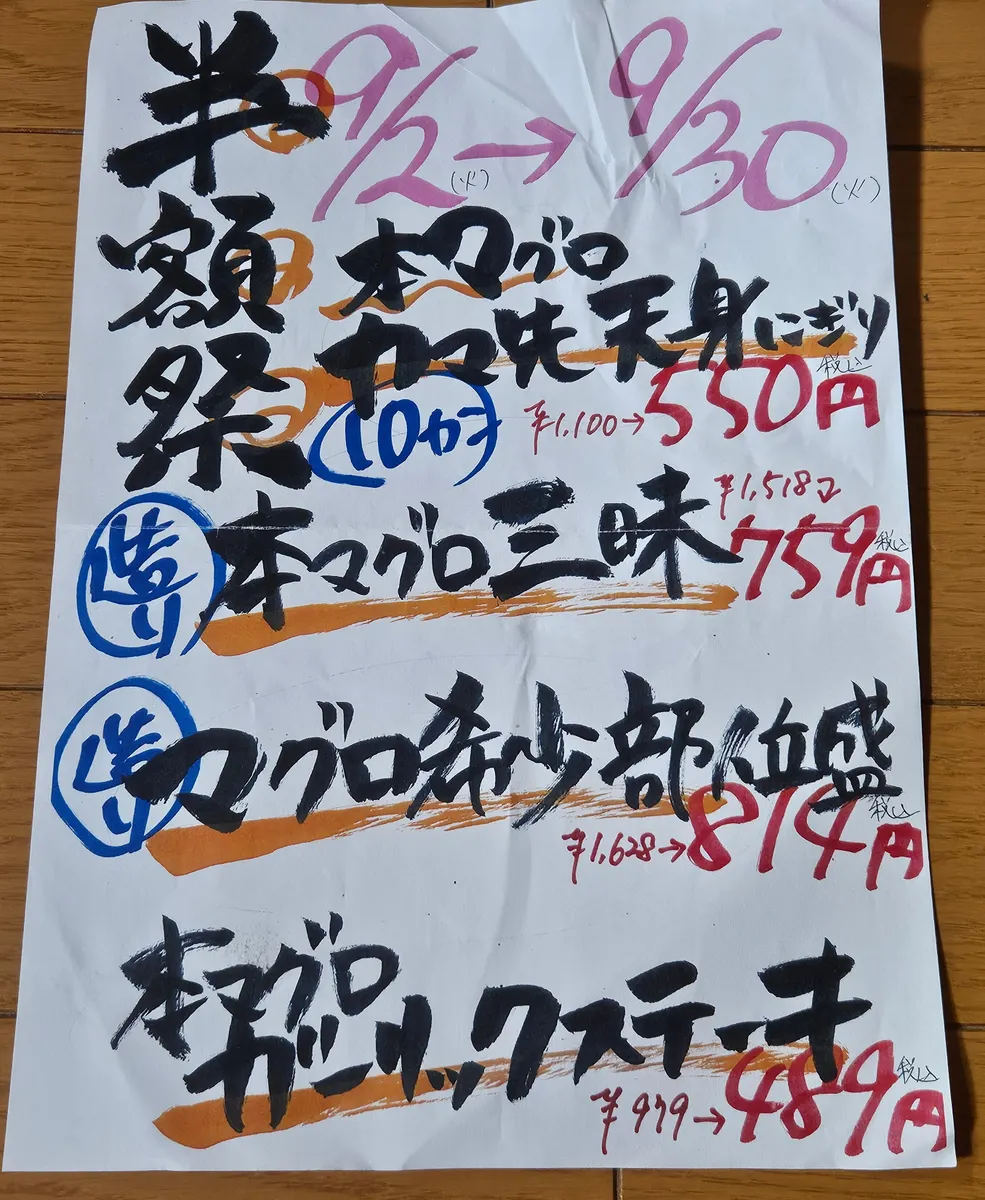 半額祭
9/2(火)→9/30(火)
本マグロ
カマ先天身にぎり
(10カン)
¥1,100→550円税込
造り 本マグロ三昧
¥1,518→759円税込
造り マグロ希少部位盛
¥1,628→814円税込
本マグロ
ガーリックステーキ
¥979→489円税込